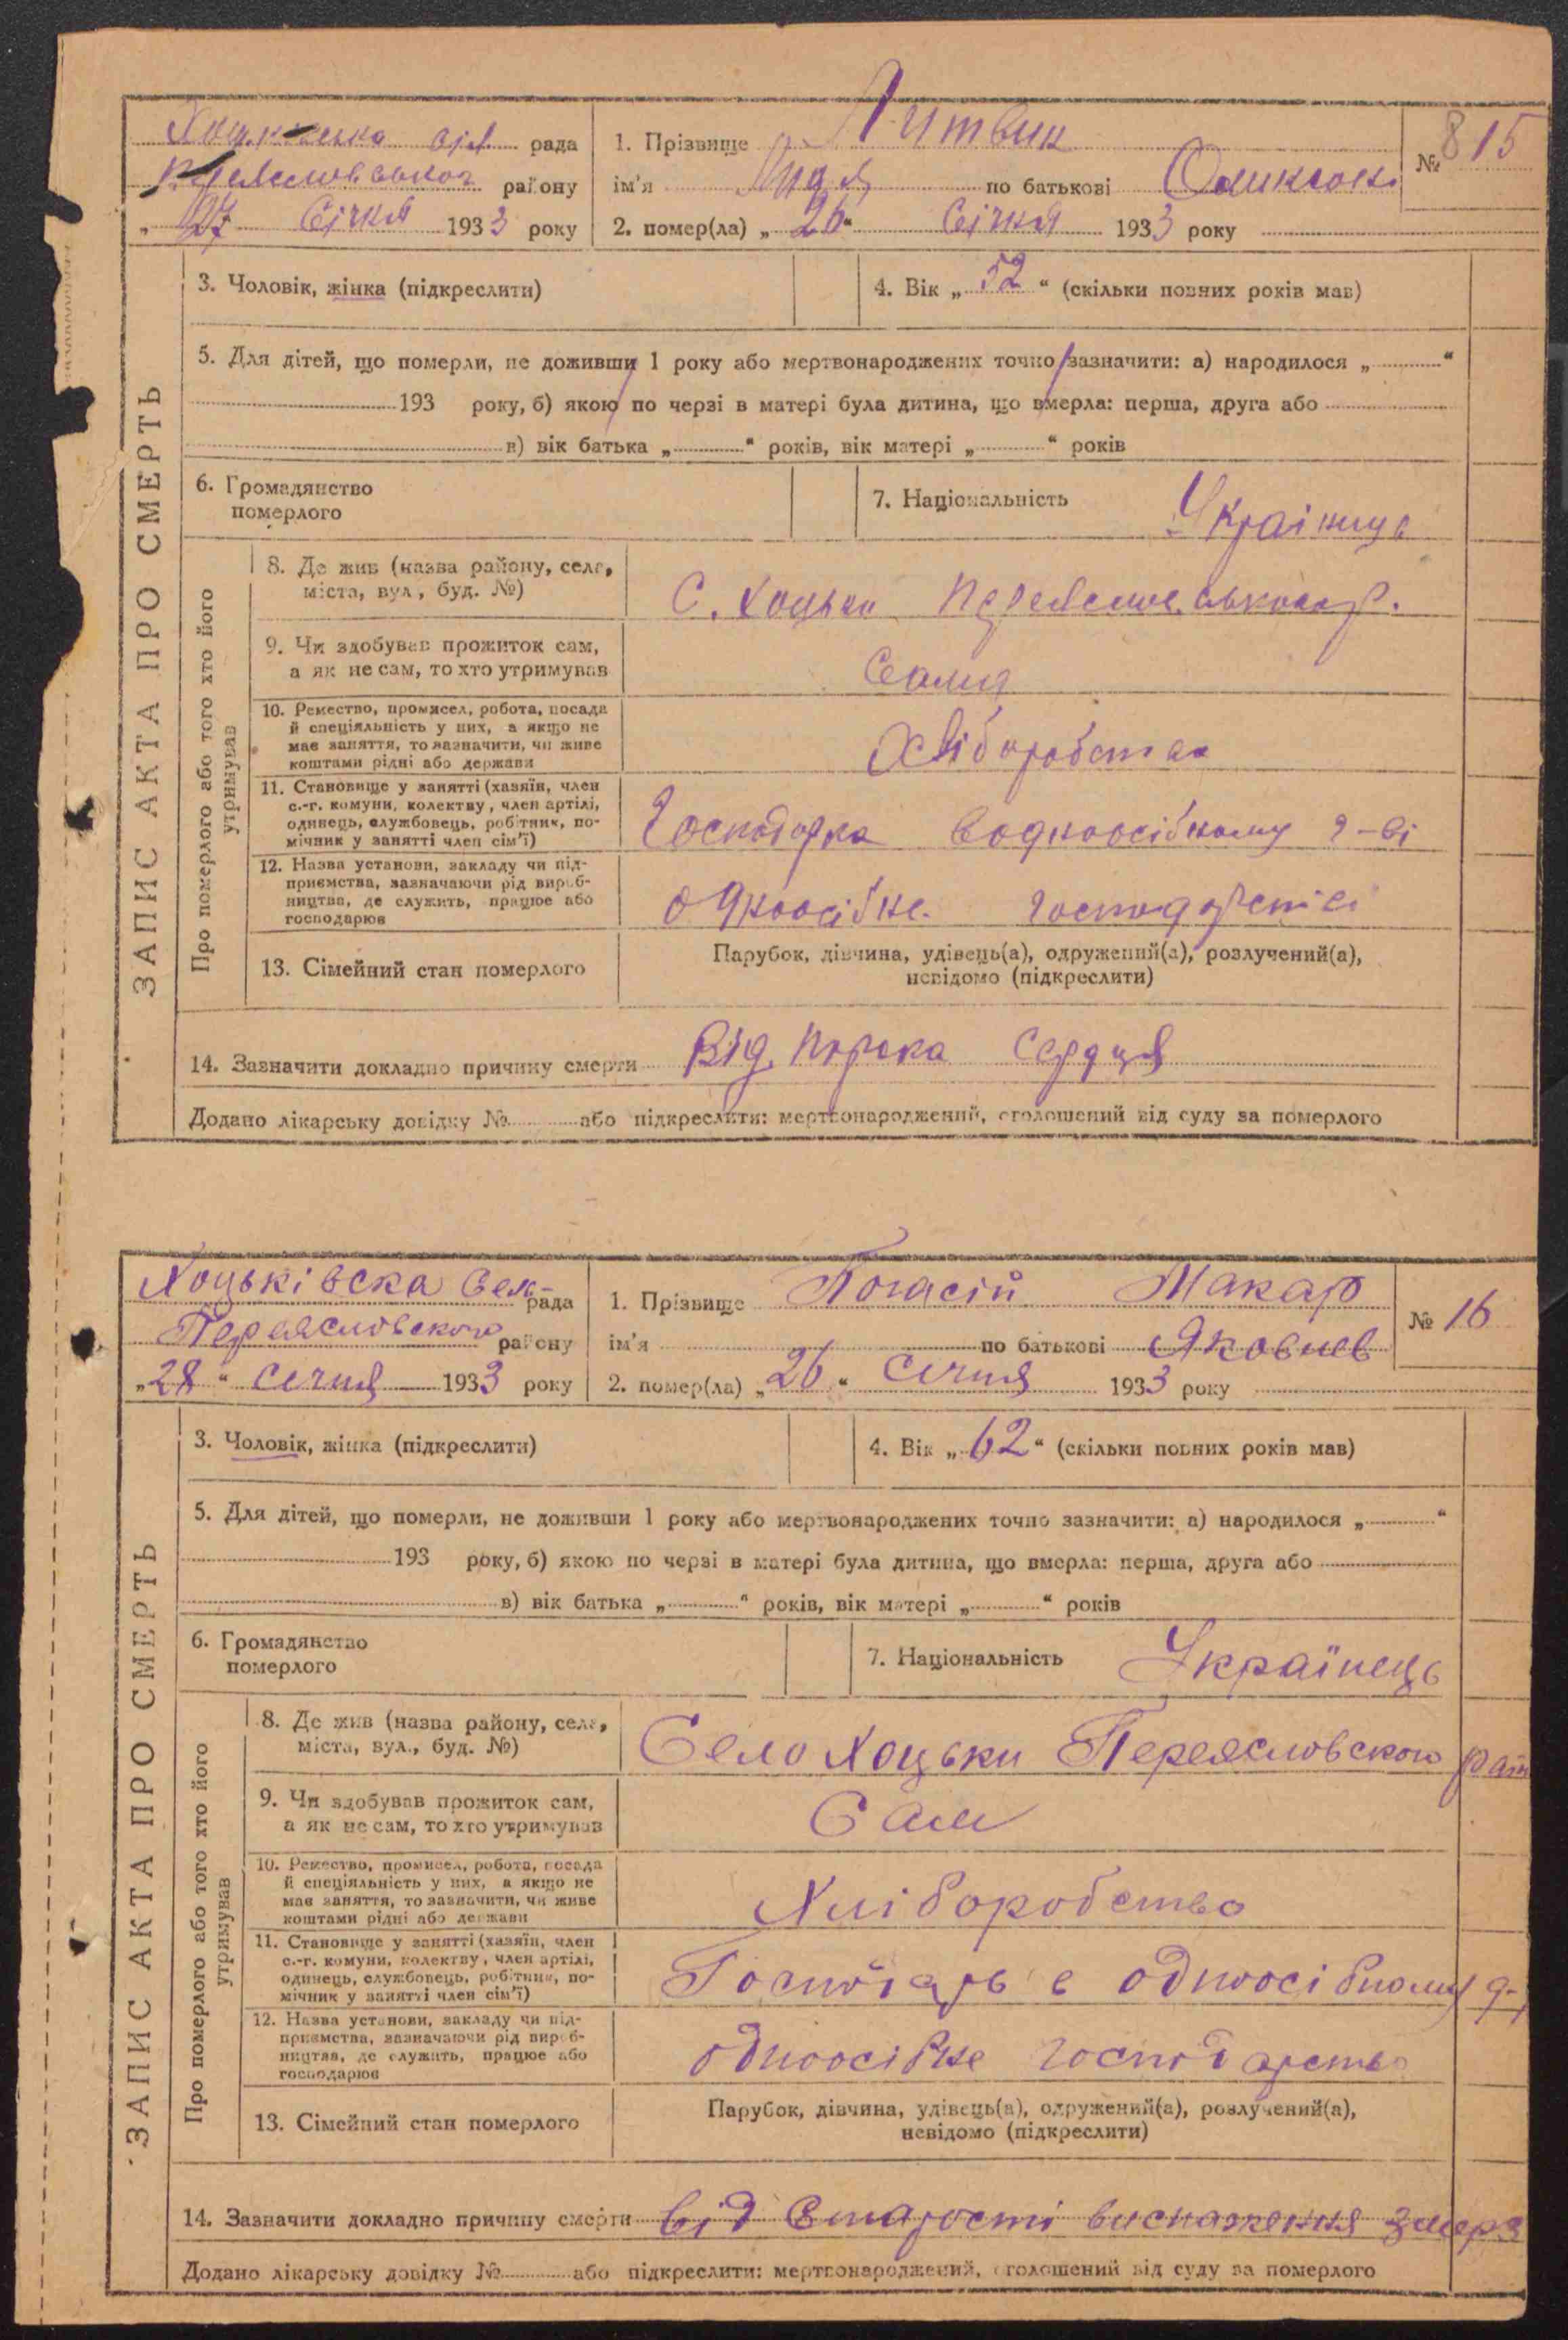 Хоцьківська сіл рада
Переяславського району
„27 Січня 1933 року
1. Прізвище Литвин
№ 815
ім'я Лидя по батькові
2. помер(ла) „26“ Січня 1933 року
ЗАПИС АКТА ПРО СМЕРТЬ
3. Чоловік, жінка (підкреслити)
4. Вік „52“ (скільки повних років мав)
5. Для дітей, що померли, не доживши 1 року або мертвонароджених точно зазначити: а) народилося „ “
193 року, б) якою по черзі в матері була дитина, що вмерла: перша, друга або
в) вік батька „ “ років, вік матері „ “ років
6. Громадянство
померлого
7. Національність Українця
Про померлого або того хто його
утримував
8. Де жив (назва району, села,
міста, вул., буд. №)
С. Хоцьки Переяславського р.
9. Чи здобував прожиток сам,
а як не сам, то хто утримував
Сама
10. Ремество, промисел, робота, посада
й спеціяльність у них, а якщо не
має заняття, то зазначити, чи живе
коштами рідні або держави
Хліборобство
11. Становище у занятті (хазяїн, член
с.-г. комуни, колектву, член артілі,
одинець, службовець, робітник, по-
мічник у занятті член сім'ї)
Господаркаводноосібному г-ві
12. Назва установи, закладу чи під-
приємства, зазначаючи рід вироб-
ництва, де служить, працює або
господарює
одноосібне господарство
13. Сімейний стан померлого
Парубок, дівчина, удівець(а), одружений(а), розлучений(а),
невідомо (підкреслити)
14. Зазначити докладно причину смерти Від порока сердця
Додано лікарську довідку № або підкреслити: мертвонароджений, оголошений від суду за померлого
Хоцьківска Сель-
рада
Переясловского району
„28“ Сечня 1933 року
1. Прізвище Погасій Макар
№ 16
ім'я по батькові Яковлев
2. помер(ла) „26“ Сечня 1933 року
ЗАПИС АКТА ПРО СМЕРТЬ
3. Чоловік, жінка (підкреслити)
4. Вік „62“ (скільки повних років мав)
5. Для дітей, що померли, не доживши 1 року або мертвонароджених точно зазначити: а) народилося „ “
193 року, б) якою по черзі в матері була дитина, що вмерла: перша, друга або
в) вік батька „ “ років, вік матері „ “ років
6. Громадянство
померлого
7. Національність Українець
Про померлого або того хто його
утримував
8. Де жив (назва району, села,
міста, вул., буд. №)
Село Хоцьки Переясловского рай
9. Чи здобував прожиток сам,
а як не сам, то хто утримував
Сам
10. Ремество, промисел, робота, посада
й спеціяльність у них, а якщо не
має заняття, то зазначити, чи живе
коштами рідні або держави
Хліборобство
11. Становище у занятті (хазяїн, член
с.-г. комуни, колектву, член артілі,
одинець, службовець, робітник, по-
мічник у занятті член сім'ї)
Господарь в одноосібному
12. Назва установи, закладу чи під-
приємства, зазначаючи рід вироб-
ництва, де служить, працює або
господарює
одноосібне господарство
13. Сімейний стан померлого
Парубок, дівчина, удівець(а), одружений(а), розлучений(а),
невідомо (підкреслити)
14. Зазначити докладно причину смерти від старости виснаження
Додано лікарську довідку № або підкреслити: мертвонароджений, оголошений від суду за померлого